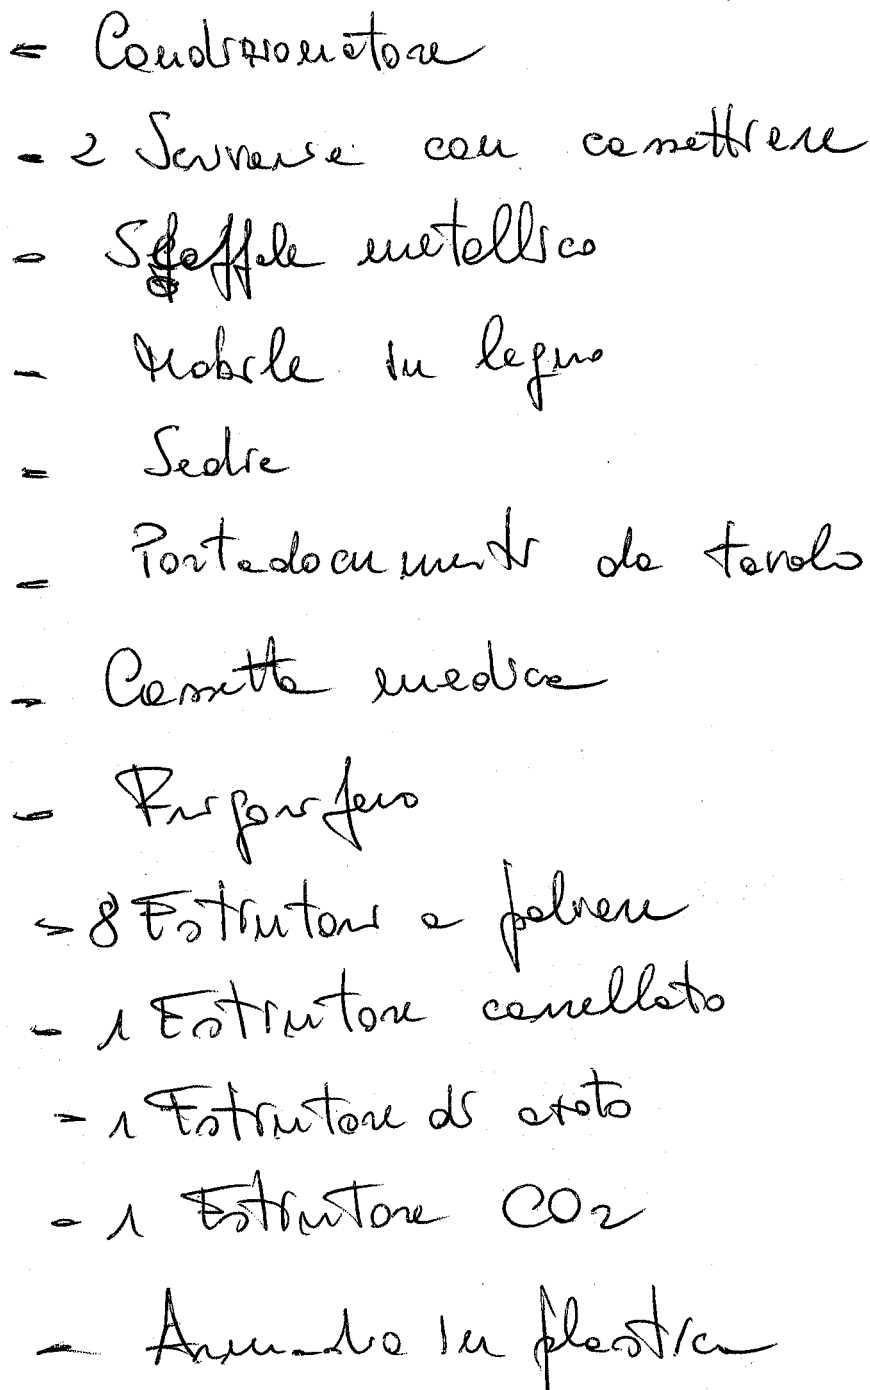 - Condizionatore
- 2 Scrivanie con cassettiere
- Scaffale metallico
- Mobile in legno
- Sedie
- Portadocumenti da tavolo
- Cassetta medica
- Frigorifero
- 8 Estintori a polvere
- 1 Estintore carrellato
- 1 Estintore di azoto
- 1 Estintore CO2
- Armadio in plastica